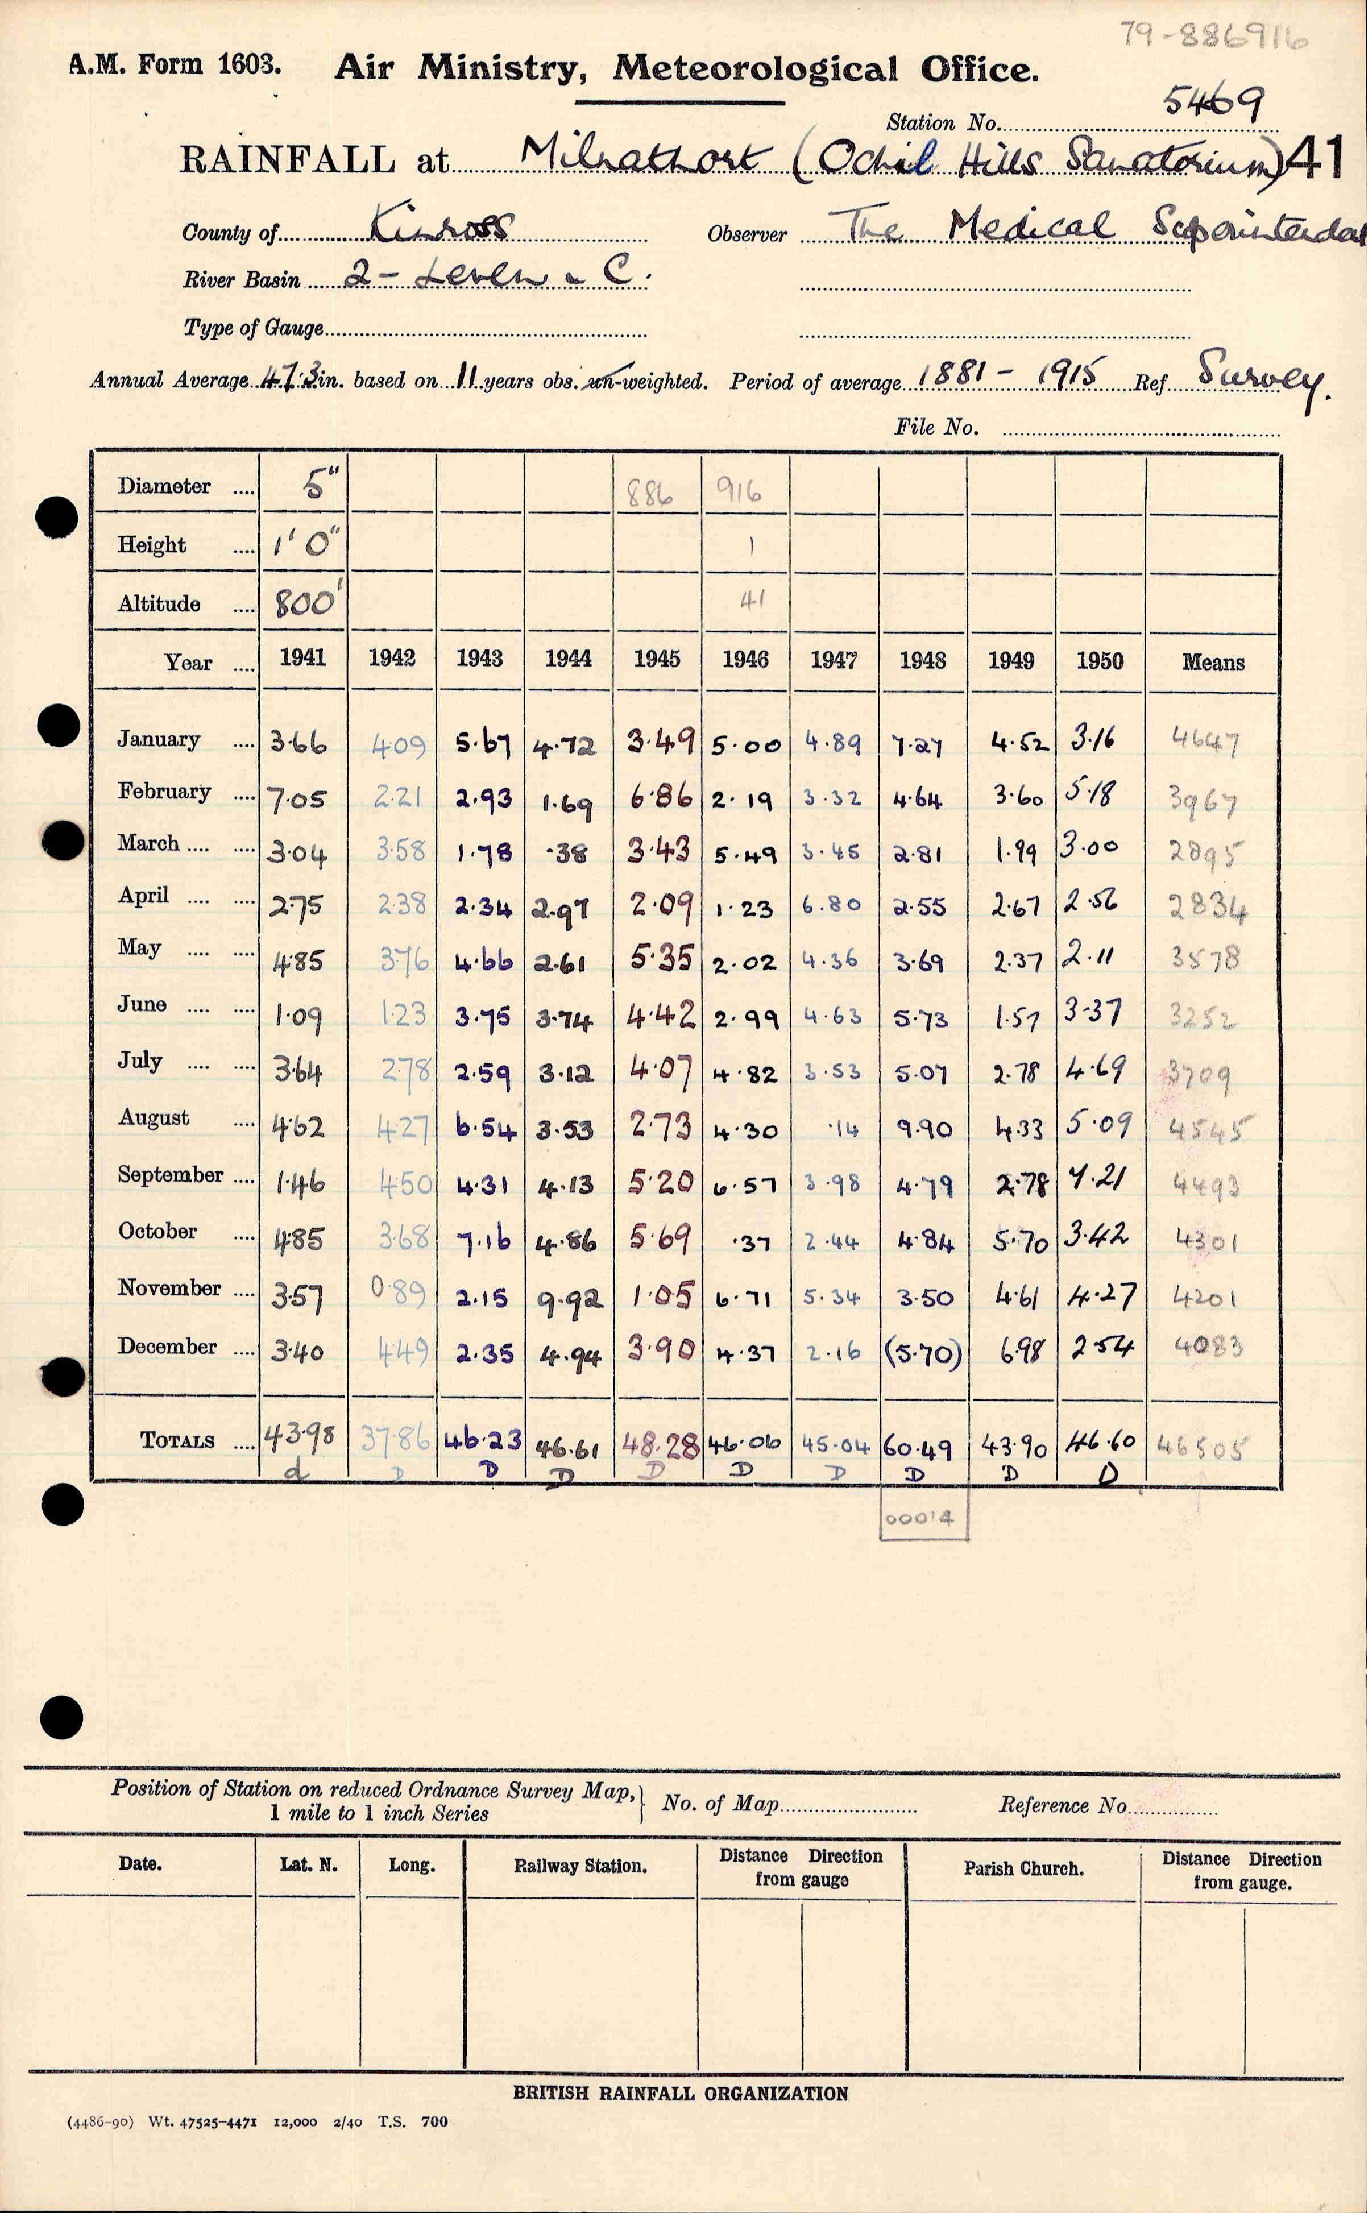 79-886916
A.M. Form 1603. Air Ministry, Meteorological Office.
Station No. 5469
RAINFALL at Milnathort (Ochil Hills Sanatorium) 41
County of Kinross Observer The Medical Superintendent
River Basin 2 - Leven & C.
Type of Gauge
Annual Average 47.3 in. based on 11 years obs. un-weighted. Period of average 1881 - 1915 Ref Survey.
File No.
Diameter .... 5" 886 916
Height .... 1' 0" 1
Altitude .... 800' 41
Year .... 1941 1942 1943 1944 1945 1946 1947 1948 1949 1950 Means
January .... 3.66 4.09 5.67 4.72 3.49 5.00 4.89 7.27 4.52 3.16 4647
February .... 7.05 2.21 2.93 1.69 6.86 2.19 3.32 4.64 3.60 5.18 3967
March .... .... 3.04 3.58 1.78 .38 3.43 5.49 3.45 2.81 1.99 3.00 2895
April .... .... 2.75 2.38 2.34 2.97 2.09 1.23 6.80 2.55 2.67 2.56 2834
May .... .... 4.85 3.76 4.66 2.61 5.35 2.02 4.36 3.69 2.37 2.11 3578
June .... .... 1.09 1.23 3.75 3.74 4.42 2.99 4.63 5.73 1.57 3.37 3252
July .... .... 3.64 2.78 2.59 3.12 4.07 4.82 3.53 5.07 2.78 4.69 3709
August .... 4.62 4.27 6.54 3.53 2.73 4.30 .14 9.90 4.33 5.09 4545
September .... 1.46 4.50 4.31 4.13 5.20 6.57 3.98 4.79 2.78 7.21 4493
October .... 4.85 3.68 7.16 4.86 5.69 .37 2.44 4.84 5.70 3.42 4301
November .... 3.57 0.89 2.15 9.92 1.05 6.71 5.34 3.50 4.61 4.27 4201
December .... 3.40 4.49 2.35 4.94 3.90 4.37 2.16 (5.70) 6.98 2.54 4083
TOTALS .... 43.98 37.86 46.23 46.61 48.28 46.06 45.04 60.49 43.90 46.60 46505
d D D D D D D D D D
00014
Position of Station on reduced Ordnance Survey Map, 1 mile to 1 inch Series } No. of Map Reference No.
Date. Lat. N. Long. Railway Station. Distance Direction from gauge Parish Church. Distance Direction from gauge.
BRITISH RAINFALL ORGANIZATION
(4486-90) Wt. 47525-4471 12,000 2/40 T.S. 700